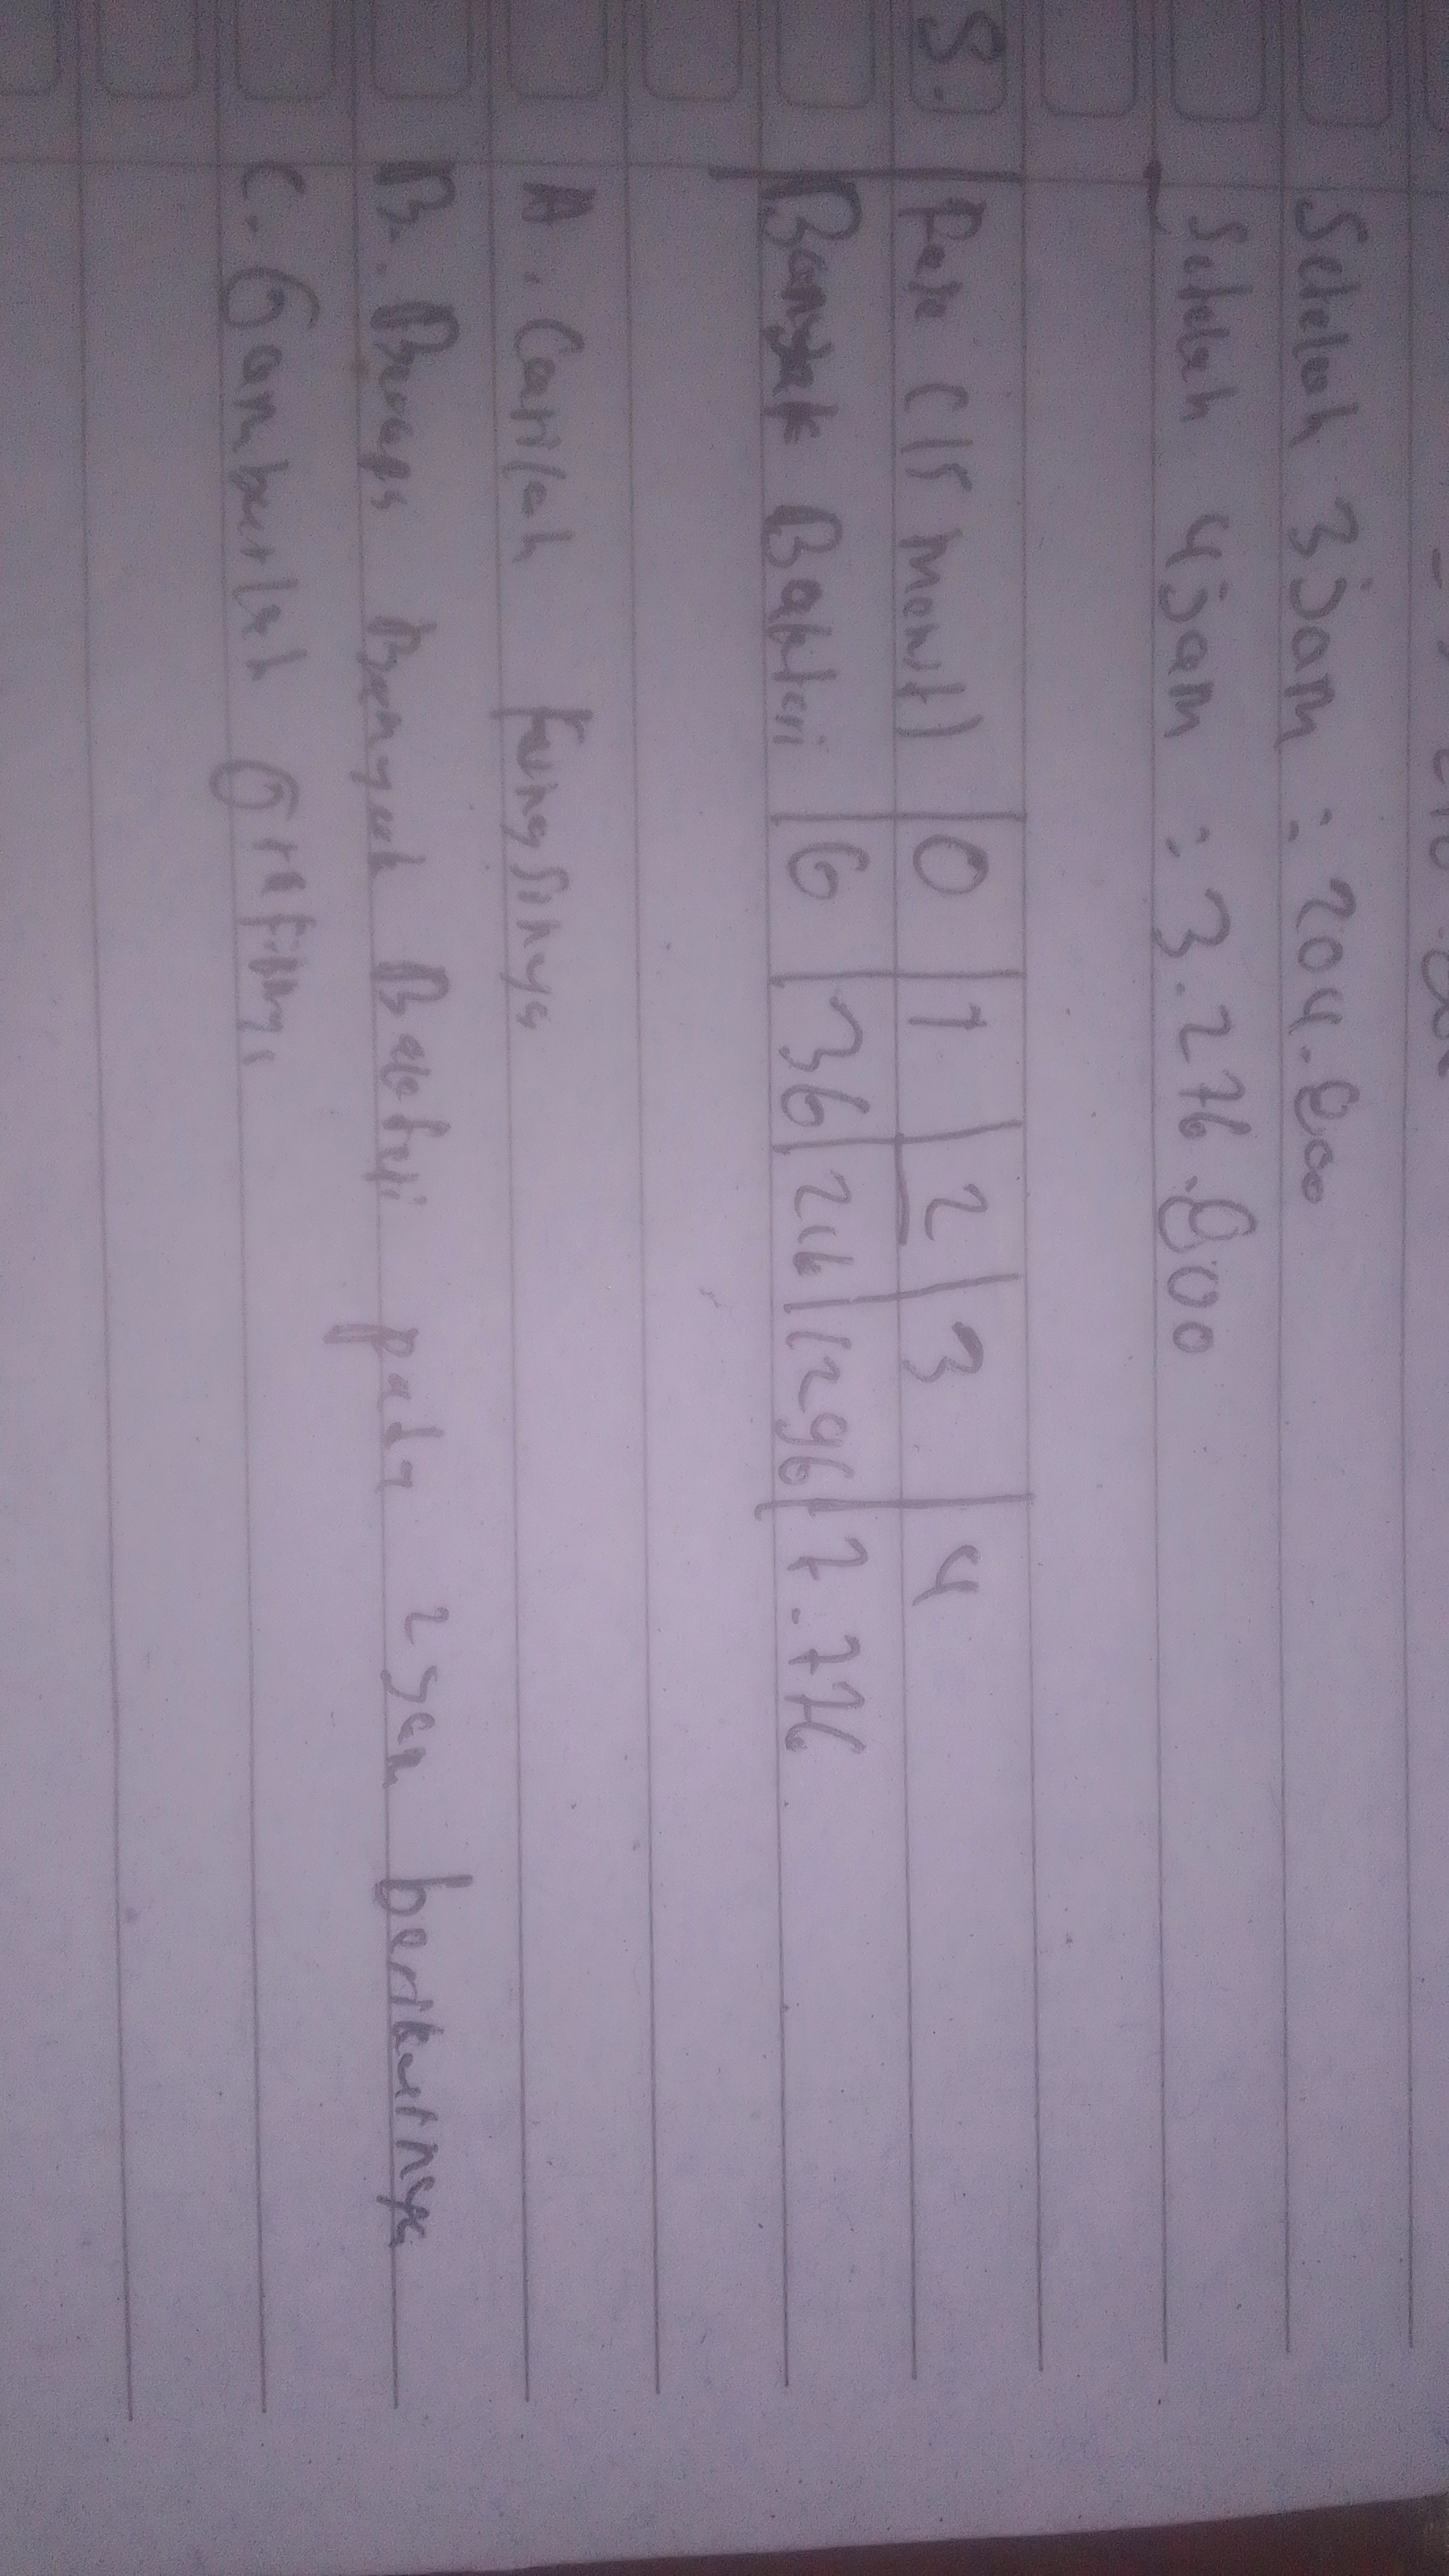 Setelah 3 jam : 204.800
Setelah 4 jam : 3.276.800
5. Fase (15 menit) 0 1 2 3 4
Banyak Bakteri 6 36 216 1296 7.776
A. Carilah Fungsinya
B. Berapa Banyak Bakteri pada 2 jam berikutnya
C. Gambarlah Grafiknya